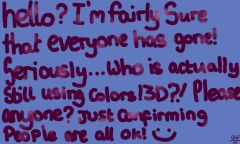 hello? I'm fairly Sure
that everyone has gone!
Seriously...Who is actually
Still using Colors!3D?! Please
anyone? Just Confirming
People are all ok! :)